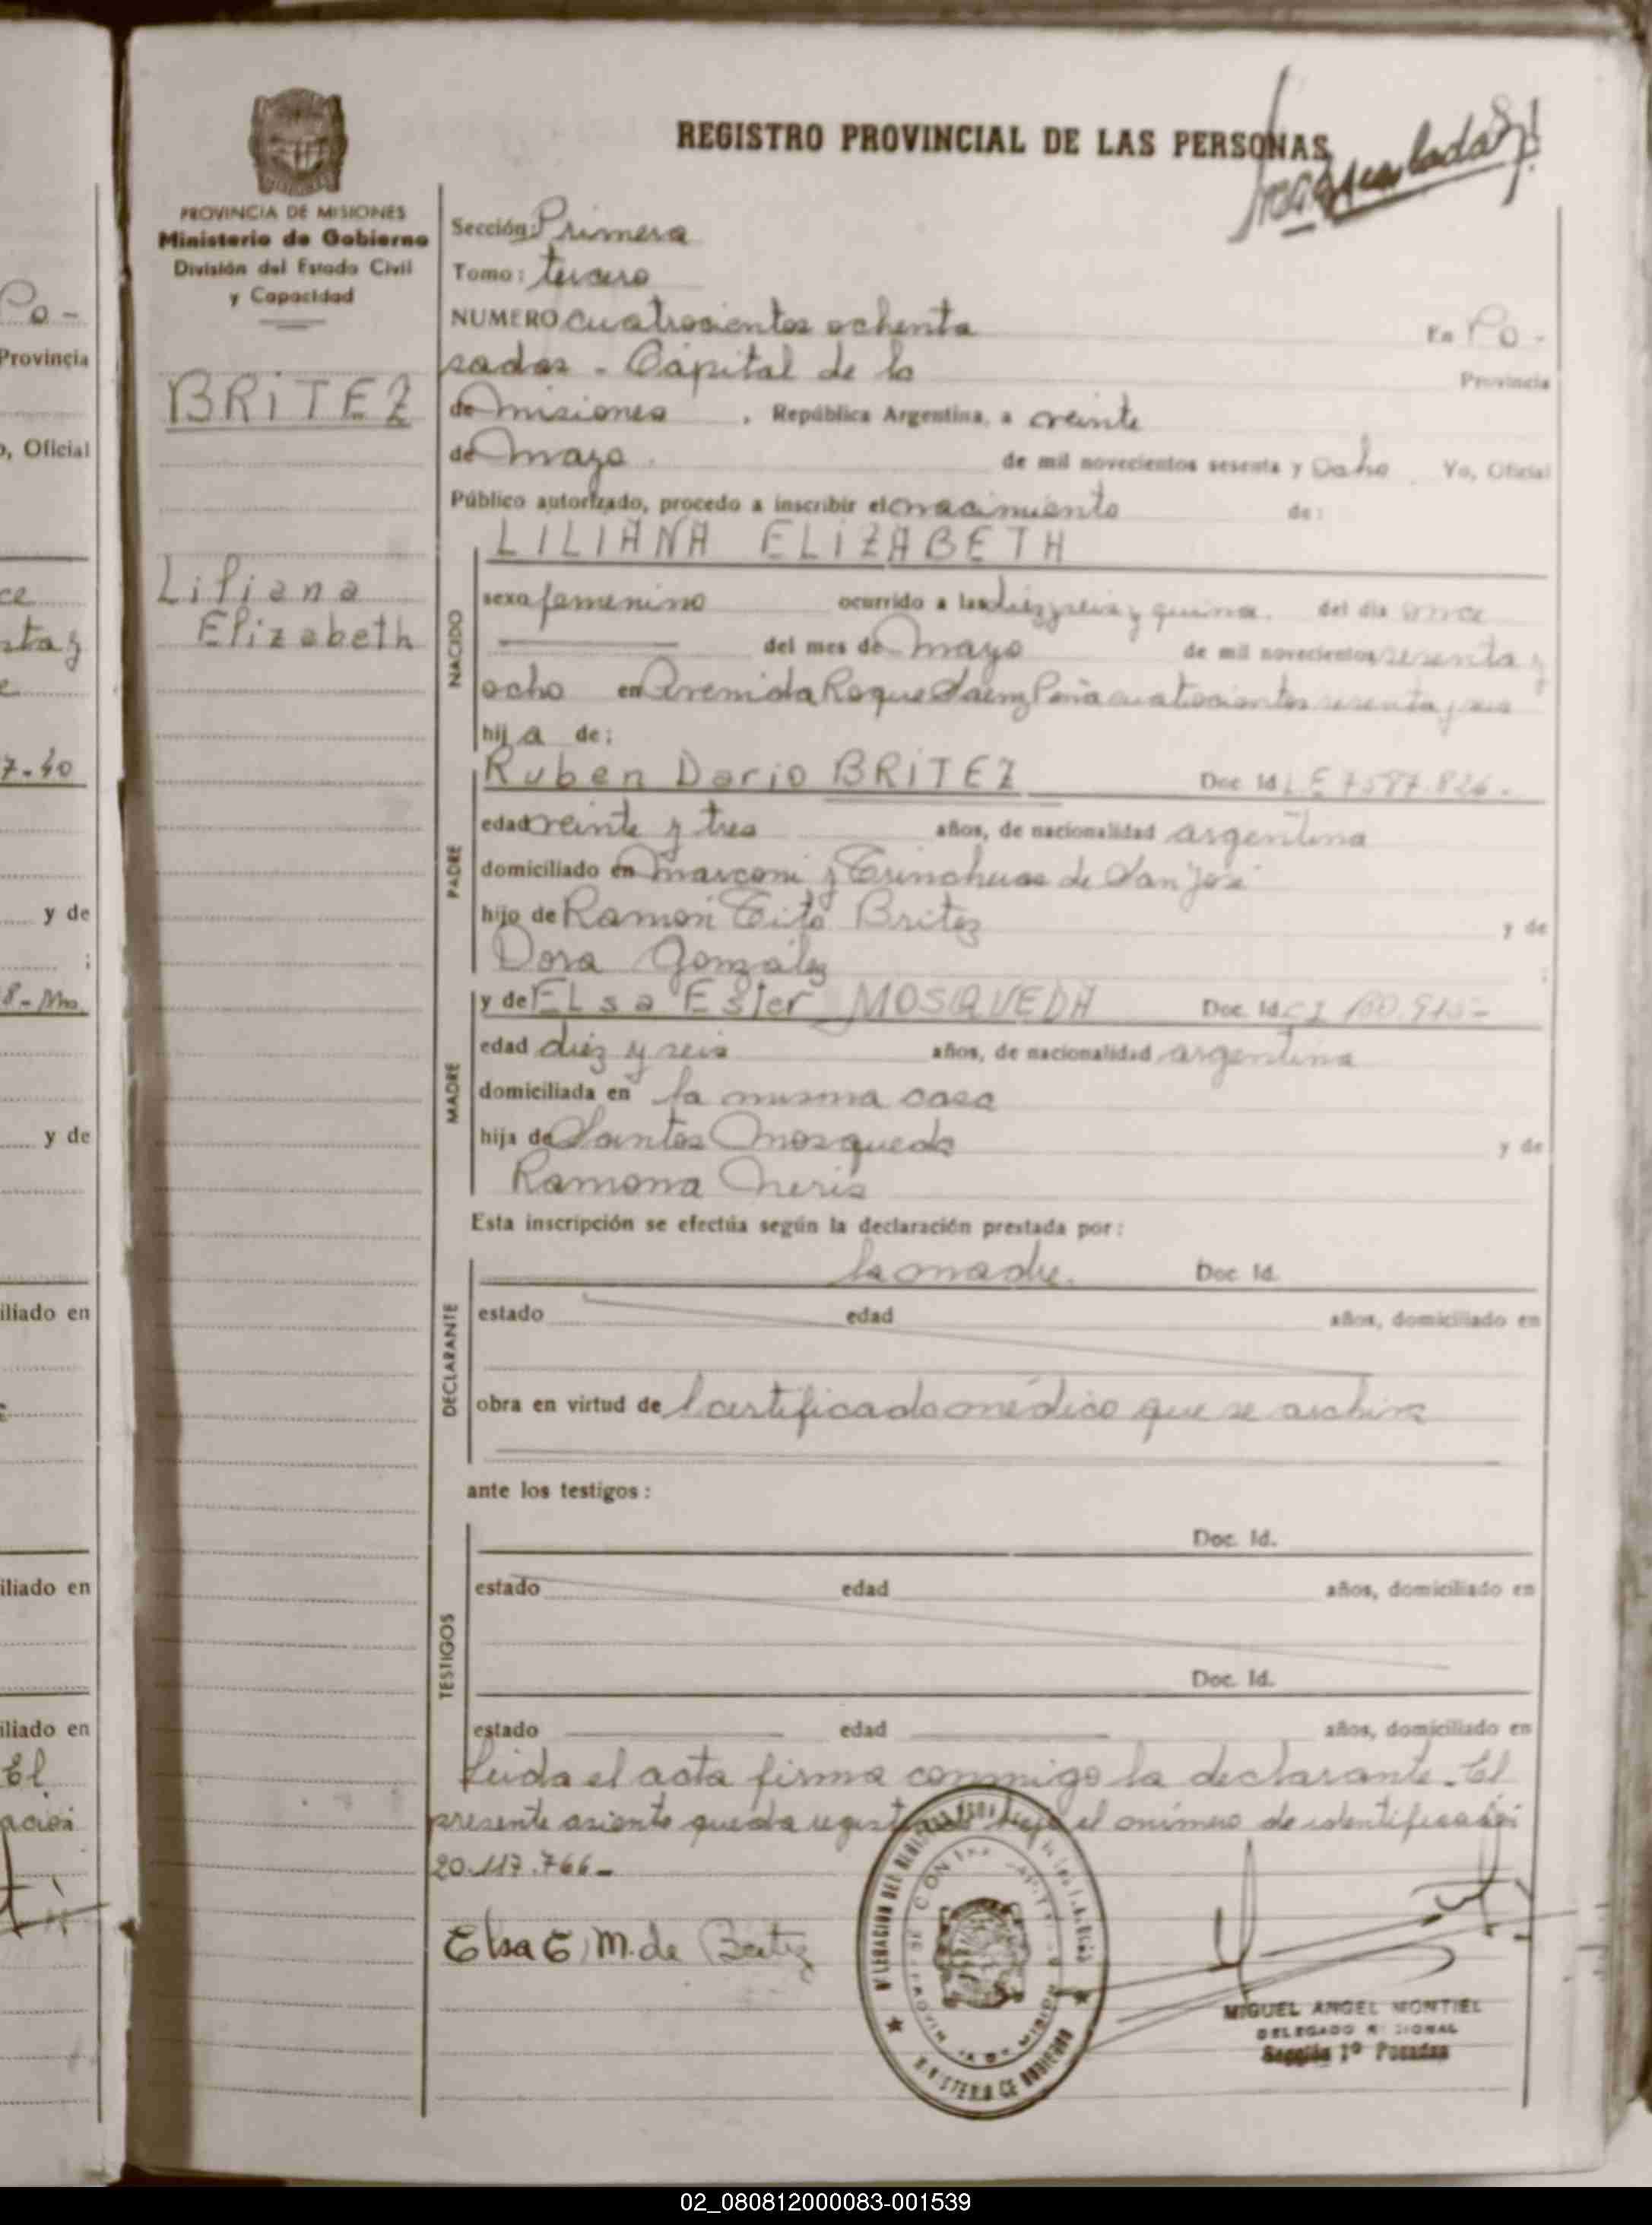 REGISTRO PROVINCIAL DE LAS PERSONAS
PROVINCIA DE MISIONES
Ministerio de Gobierno
División del Estado Civil
y Capacidad
BRITEZ
Liliana
Elizabeth
Sección: Primera
Tomo: tercero
NUMERO cuatrocientos ochenta En Po-
sadas - Capital de la Provincia
de Misiones, República Argentina, a veinte
de Mayo de mil novecientos sesenta y Ocho Yo, Oficial
Público autorizado, procedo a inscribir el nacimiento de:
LILIANA ELIZABETH
NACIDO
sexo femenino ocurrido a las diez y seis y quince del día once
del mes de Mayo de mil novecientos sesenta y
ocho en Avenida Roque Saenz Peña cuatrocientos sesenta y seis
hija de:
PADRE
Ruben Dario BRITEZ Doc. Id. LE 7587.826.
edad veinte y tres años, de nacionalidad argentina
domiciliado en Marconi y Trincheras de San José
hijo de Ramón Tito Britez y de
Dora González ;
MADRE
y de ELsa Ester MOSQUEDA Doc. Id. CI
edad diez y seis años, de nacionalidad argentina
domiciliada en la misma casa
hija de Santos Mosqueda y de
Ramona Neris
Esta inscripción se efectúa según la declaración prestada por:
DECLARANTE
la madre. Doc. Id.
estado edad años, domiciliado en
obra en virtud de l certificado médico que se archiva
ante los testigos:
TESTIGOS
Doc. Id.
estado edad años, domiciliado en
Doc. Id.
estado edad años, domiciliado en
Leida el acta firma conmigo la declarante. El
presente asiento queda registrado bajo el número de identificación
20.117.766-
Elsa E. M. de Britez
MIGUEL ANGEL MONTIEL
DELEGADO REGIONAL
Sección 1º Posadas
MINISTERIO DE GOBIERNO
Po-
Provincia
o, Oficial
ce
7-40
y de
;
y de
iliado en
iliado en
iliado en
El
02_080812000083-001539